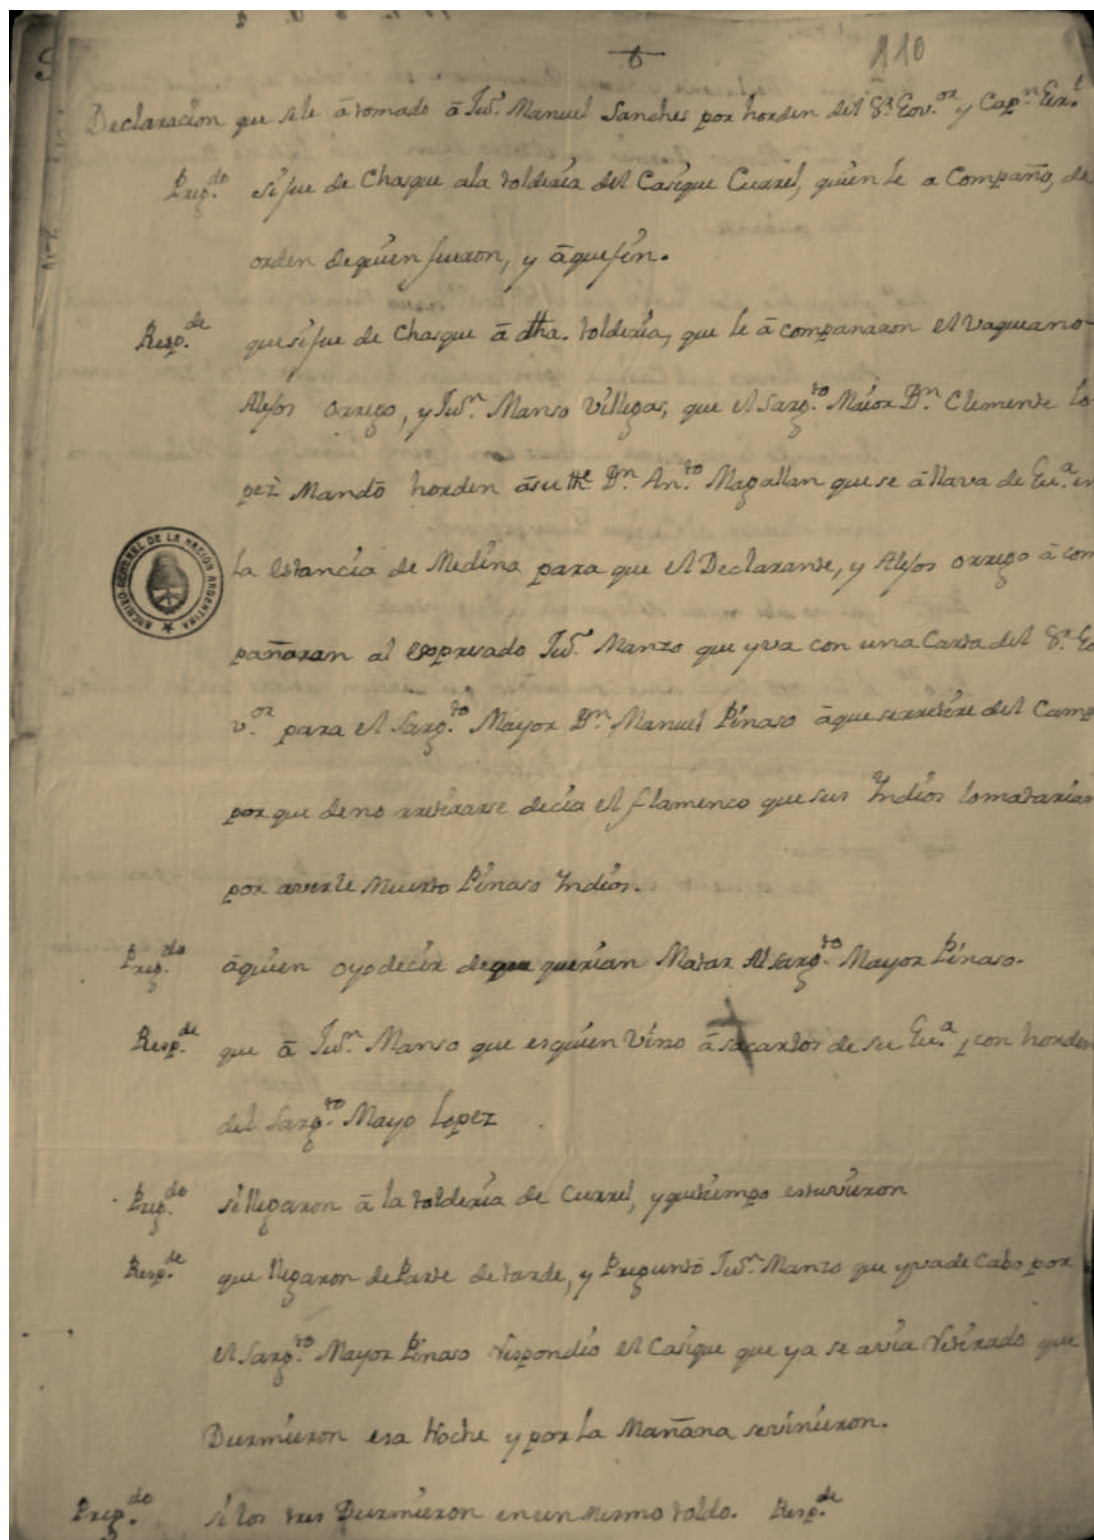 110
Declaracion que sele â tomado â Juº. Manuel Sanches por horden del Sr. Gov.or y Cap.n Gen.l
Preg.do si fue de Chasque ala tolderia del Casique Currel, quien le a Compaño, de
orden dequien fueron, y âque fin.
Resp.de que si fue de Chasque â dha. tolderia, que le â companaron el Vaqueano
Alejos Orrego, y Jun. Manso Villegas, que el Sarg.to Maior Dn. Clemente Lo
pez Mandô horden âsu the. Dn. An.to Magallan que se âllava de Gu.a en
la estancia de Medina para que el Declarante, y Alejos Orrego â com
pañaran al expresado Juº. Manzo que yva con una Carta del Sr. Go
v.or para el Sarg.to Mayor Dn. Manuel Pinaso âque serretire del Camp
por que deno rretirarse decia el flamenco que sus Yndios lomatarian
por averle Muerto Pinaso Yndios.
Preg.do âquien oyo decir deque querian Matar al Sarg.to Mayor Pinaso.
Resp.de que â Jun. Manso que esquien Vino â sacarlos de su Gu.a, con horden
del Sarg.to Mayo Lopez
Preg.do si llegaron â la tolderia de Currel, yquetiempo estuvieron
Resp.de que llegaron de Parte de tarde, y Preguntô Jun. Manzo que yvade Cabo por
el Sarg.to Mayor Pinaso respondio el Casique que ya se avia retirado que
Durmieron esa Noche y por la Mañana sevinieron.
Preg.do si los tres Durmieron enun mesmo toldo. Resp.de
ARCHIVO GENERAL DE LA NACION ARGENTINA